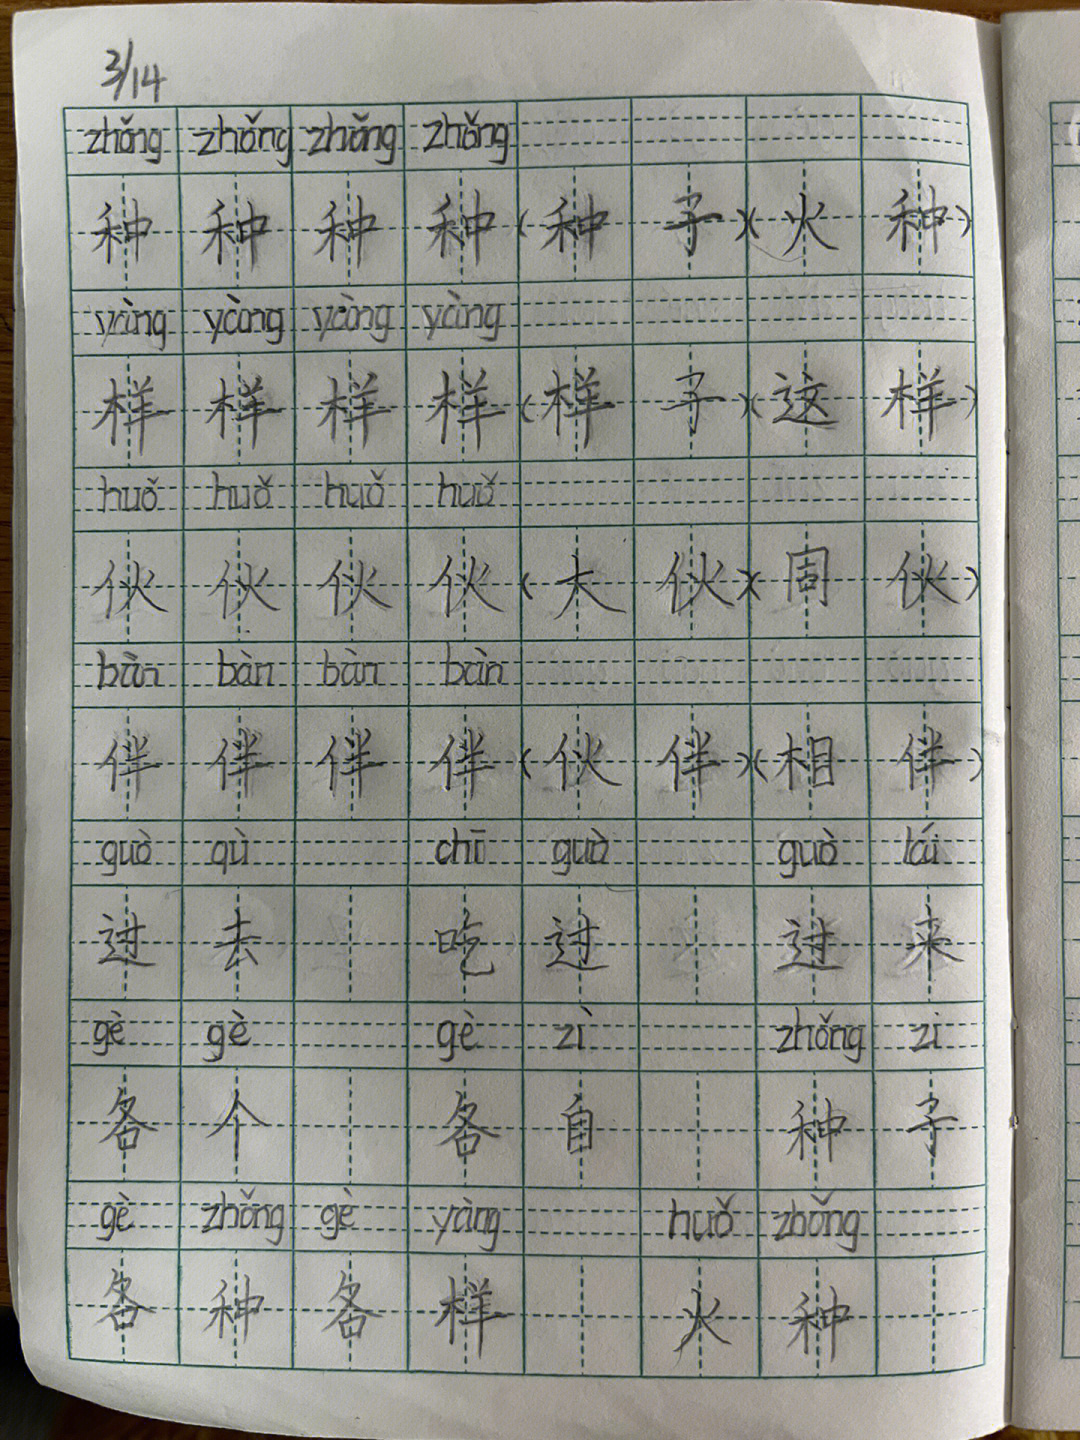 3/14
zhǒng zhǒng zhǒng zhǒng
种 种 种 种 (种 子) (火 种)
yàng yàng yàng yàng
样 样 样 样 (样 子) (这 样)
huǒ huǒ huǒ huǒ
伙 伙 伙 伙 (大 伙) (同 伙)
bàn bàn bàn bàn
伴 伴 伴 伴 (伙 伴) (相 伴)
guò qù chī guò guò lái
过 去 吃 过 过 来
gè gè gè zì zhǒng zi
各 个 各 自 种 子
gè zhǒng gè yàng huǒ zhǒng
各 种 各 样 火 种